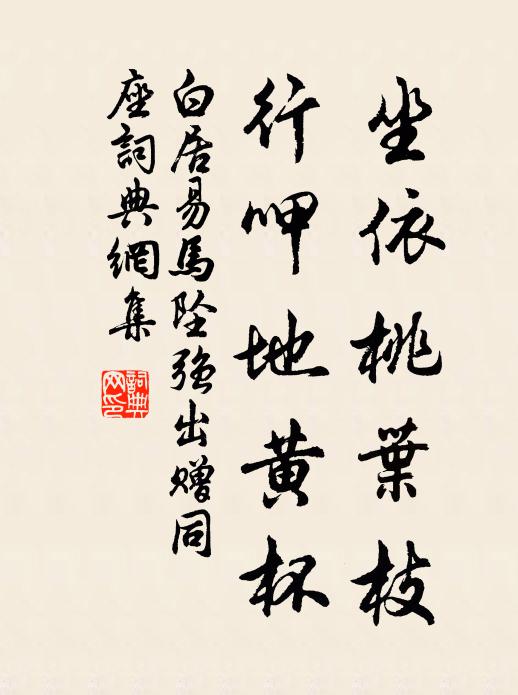 坐依桃葉枝
行呷地黄杯
白居易馬墜強出贈同
座詞典網集
詞典
网印